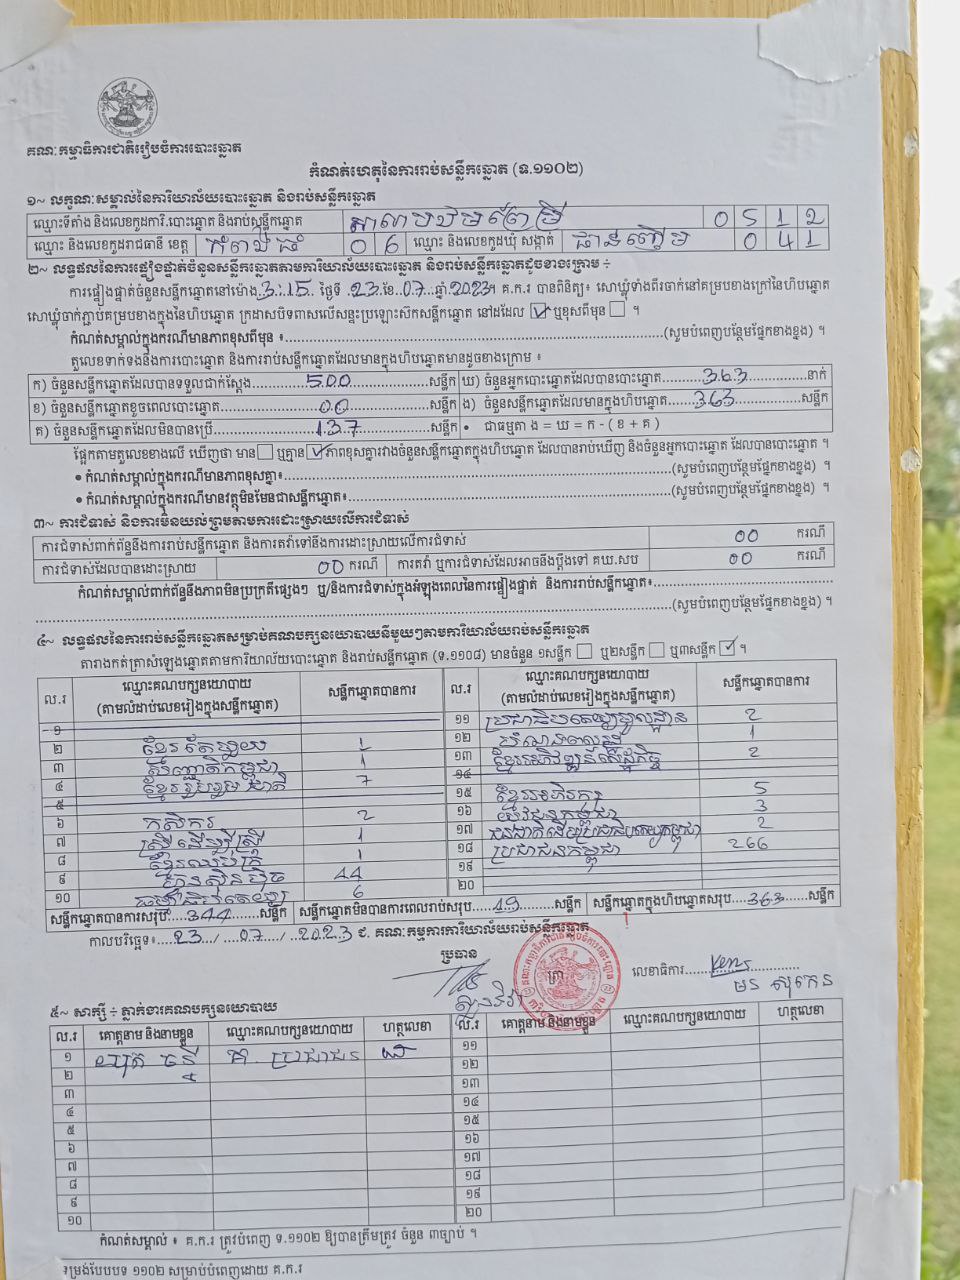 គណៈកម្មាធិការជាតិរៀបចំការបោះឆ្នោត
កំណត់ហេតុនៃការរាប់សន្លឹកឆ្នោត (ទ.១១០២)
១~ លក្ខណៈសម្គាល់នៃការិយាល័យបោះឆ្នោត និងរាប់សន្លឹកឆ្នោត
ឈ្មោះទីតាំង និងលេខកូដការិ.បោះឆ្នោត និងរាប់សន្លឹកឆ្នោត 0 5 1 2
ឈ្មោះ និងលេខកូដរាជធានី ខេត្ត កំពង់ធំ 0 6 ឈ្មោះ និងលេខកូដឃុំ សង្កាត់ 0 4 1
២~ លទ្ធផលនៃការផ្ទៀងផ្ទាត់ចំនួនសន្លឹកឆ្នោតតាមការិយាល័យបោះឆ្នោត និងរាប់សន្លឹកឆ្នោតដូចខាងក្រោម ÷
ការផ្ទៀងផ្ទាត់ចំនួនសន្លឹកឆ្នោតនៅម៉ោង 3:15 ថ្ងៃទី 23 ខែ 07 ឆ្នាំ 2023។ គ.ក.រ បានពិនិត្យ៖ សោឃ្លុំទាំងពីរចាក់នៅគម្របខាងក្រៅនៃហិបឆ្នោត
សោឃ្លុំចាក់ភ្ជាប់គម្របខាងក្នុងនៃហិបឆ្នោត ក្រដាសបិទពាសលើសន្ទះប្រឡោះសឹកសន្លឹកឆ្នោត នៅដដែល ☑ ឬខុសពីមុន ☐ ។
កំណត់សម្គាល់ក្នុងករណីមានភាពខុសពីមុន ៖ (សូមបំពេញបន្ថែមផ្នែកខាងខ្នង) ។
តួលេខទាក់ទងនឹងការបោះឆ្នោត និងការរាប់សន្លឹកឆ្នោតដែលមានក្នុងហិបឆ្នោតមានដូចខាងក្រោម ៖
ក) ចំនួនសន្លឹកឆ្នោតដែលបានទទួលជាក់ស្តែង 500 សន្លឹក ឃ) ចំនួនអ្នកបោះឆ្នោតដែលបានបោះឆ្នោត 363 នាក់
ខ) ចំនួនសន្លឹកឆ្នោតខូចពេលបោះឆ្នោត 00 សន្លឹក ង) ចំនួនសន្លឹកឆ្នោតដែលមានក្នុងហិបឆ្នោត 363 សន្លឹក
គ) ចំនួនសន្លឹកឆ្នោតដែលមិនបានប្រើ 137 សន្លឹក • ជាធម្មតា ង = ឃ = ក - ( ខ + គ )
ផ្អែកតាមតួលេខខាងលើ ឃើញថា មាន ☐ ឬគ្មាន ☑ ភាពខុសគ្នារវាងចំនួនសន្លឹកឆ្នោតក្នុងហិបឆ្នោត ដែលបានរាប់ឃើញ និងចំនួនអ្នកបោះឆ្នោត ដែលបានបោះឆ្នោត ។
• កំណត់សម្គាល់ក្នុងករណីមានភាពខុសគ្នា៖ (សូមបំពេញបន្ថែមផ្នែកខាងខ្នង) ។
• កំណត់សម្គាល់ក្នុងករណីមានវត្ថុមិនមែនជាសន្លឹកឆ្នោត៖ (សូមបំពេញបន្ថែមផ្នែកខាងខ្នង) ។
៣~ ការជំទាស់ និងការមិនយល់ព្រមតាមការដោះស្រាយលើការជំទាស់
ការជំទាស់ពាក់ព័ន្ធនឹងការរាប់សន្លឹកឆ្នោត និងការតវ៉ាទៅនឹងការដោះស្រាយលើការជំទាស់ 00 ករណី
ការជំទាស់ដែលបានដោះស្រាយ 00 ករណី ការតវ៉ា ឬការជំទាស់ដែលអាចនឹងប្តឹងទៅ គឃ.សប 00 ករណី
កំណត់សម្គាល់ពាក់ព័ន្ធនឹងភាពមិនប្រក្រតីផ្សេងៗ ឬ/និងការជំទាស់ក្នុងអំឡុងពេលនៃការផ្ទៀងផ្ទាត់ និងការរាប់សន្លឹកឆ្នោត៖
(សូមបំពេញបន្ថែមផ្នែកខាងខ្នង) ។
៤~ លទ្ធផលនៃការរាប់សន្លឹកឆ្នោតសម្រាប់គណបក្សនយោបាយនីមួយៗតាមការិយាល័យរាប់សន្លឹកឆ្នោត
តារាងកត់ត្រាសំឡេងឆ្នោតតាមការិយាល័យបោះឆ្នោត និងរាប់សន្លឹកឆ្នោត (ទ.១១០៨) មានចំនួន ១សន្លឹក ☐ ឬ២សន្លឹក ☐ ឬ៣សន្លឹក ☑ ។
ល.រ ឈ្មោះគណបក្សនយោបាយ (តាមលំដាប់លេខរៀងក្នុងសន្លឹកឆ្នោត) សន្លឹកឆ្នោតបានការ ល.រ ឈ្មោះគណបក្សនយោបាយ (តាមលំដាប់លេខរៀងក្នុងសន្លឹកឆ្នោត) សន្លឹកឆ្នោតបានការ
១ ១១ ប្រជាធិបតេយ្យមូលដ្ឋាន 2
២ ខ្មែរតែមួយ 1 ១២ 1
៣ សញ្ជាតិកម្ពុជា 1 ១៣ ខ្មែរអភិវឌ្ឍន៍សេដ្ឋកិច្ច 2
៤ ខ្មែររួបរួមជាតិ 7 ១៤
៥ ១៥ ខ្មែរអភិរក្ស 5
៦ កសិករ 2 ១៦ យុវជនកម្ពុជា 3
៧ ស្រ្តីដើម្បីស្រ្តី 1 ១៧ 2
៨ ខ្មែរឈប់ក្រ 1 ១៨ ប្រជាជនកម្ពុជា 266
៩ ហ៊្វុនស៊ិនប៉ិច 44 ១៩
១០ ធម្មាធិបតេយ្យ 6 ២០
សន្លឹកឆ្នោតបានការសរុប 344 សន្លឹក សន្លឹកឆ្នោតមិនបានការពេលរាប់សរុប 19 សន្លឹក សន្លឹកឆ្នោតក្នុងហិបឆ្នោតសរុប 363 សន្លឹក
កាលបរិច្ឆេទ៖ 23 / 07 / 2023 ជ. គណៈកម្មការការិយាល័យរាប់សន្លឹកឆ្នោត
ប្រធាន ត្រា លេខាធិការ
៥~ សាក្សី ÷ ភ្នាក់ងារគណបក្សនយោបាយ
ល.រ គោត្តនាម និងនាមខ្លួន ឈ្មោះគណបក្សនយោបាយ ហត្ថលេខា ល.រ គោត្តនាម និងនាមខ្លួន ឈ្មោះគណបក្សនយោបាយ ហត្ថលេខា
១ គ. ប្រជាជន ១១
២ ១២
៣ ១៣
៤ ១៤
៥ ១៥
៦ ១៦
៧ ១៧
៨ ១៨
៩ ១៩
១០ ២០
កំណត់សម្គាល់ ៖ គ.ក.រ ត្រូវបំពេញ ទ.១១០២ ឱ្យបានត្រឹមត្រូវ ចំនួន ៣ច្បាប់ ។
ទម្រង់បែបបទ ១១០២ សម្រាប់បំពេញដោយ គ.ក.រ